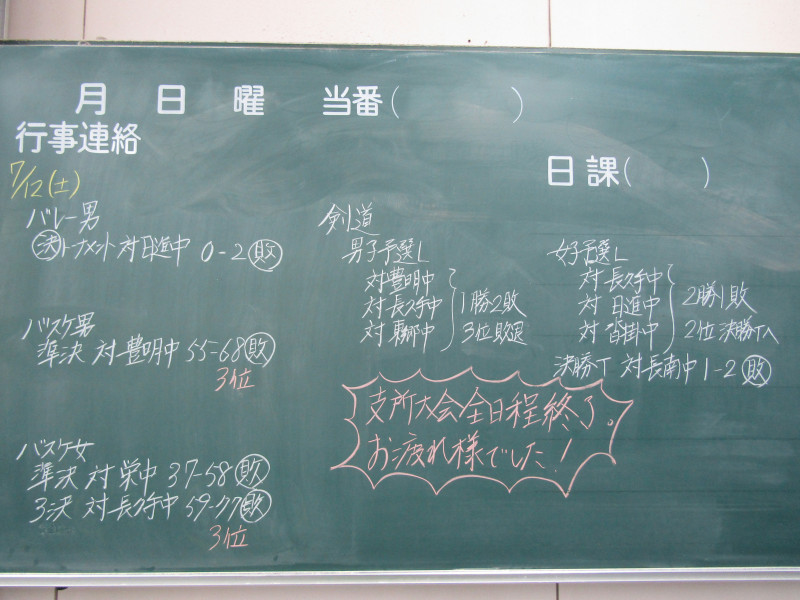 月 日 曜 当番( )
行事連絡
日課( )
7/12(土)
バレー男
決トーナメント 対日進中 0-2 敗
バスケ男
準決 対豊明中 55-68 敗
3位
バスケ女
準決 対栄中 37-58 敗
3決 対長久手中 59-77 敗
3位
剣道
男子予選L
対豊明中
対長久手中
対東郷中
1勝2敗
3位敗退
女子予選L
対長久手中
対日進中
対沓掛中
2勝1敗
2位決勝Tへ
決勝T 対長南中 1-2 敗
支所大会全日程終了。
お疲れ様でした!